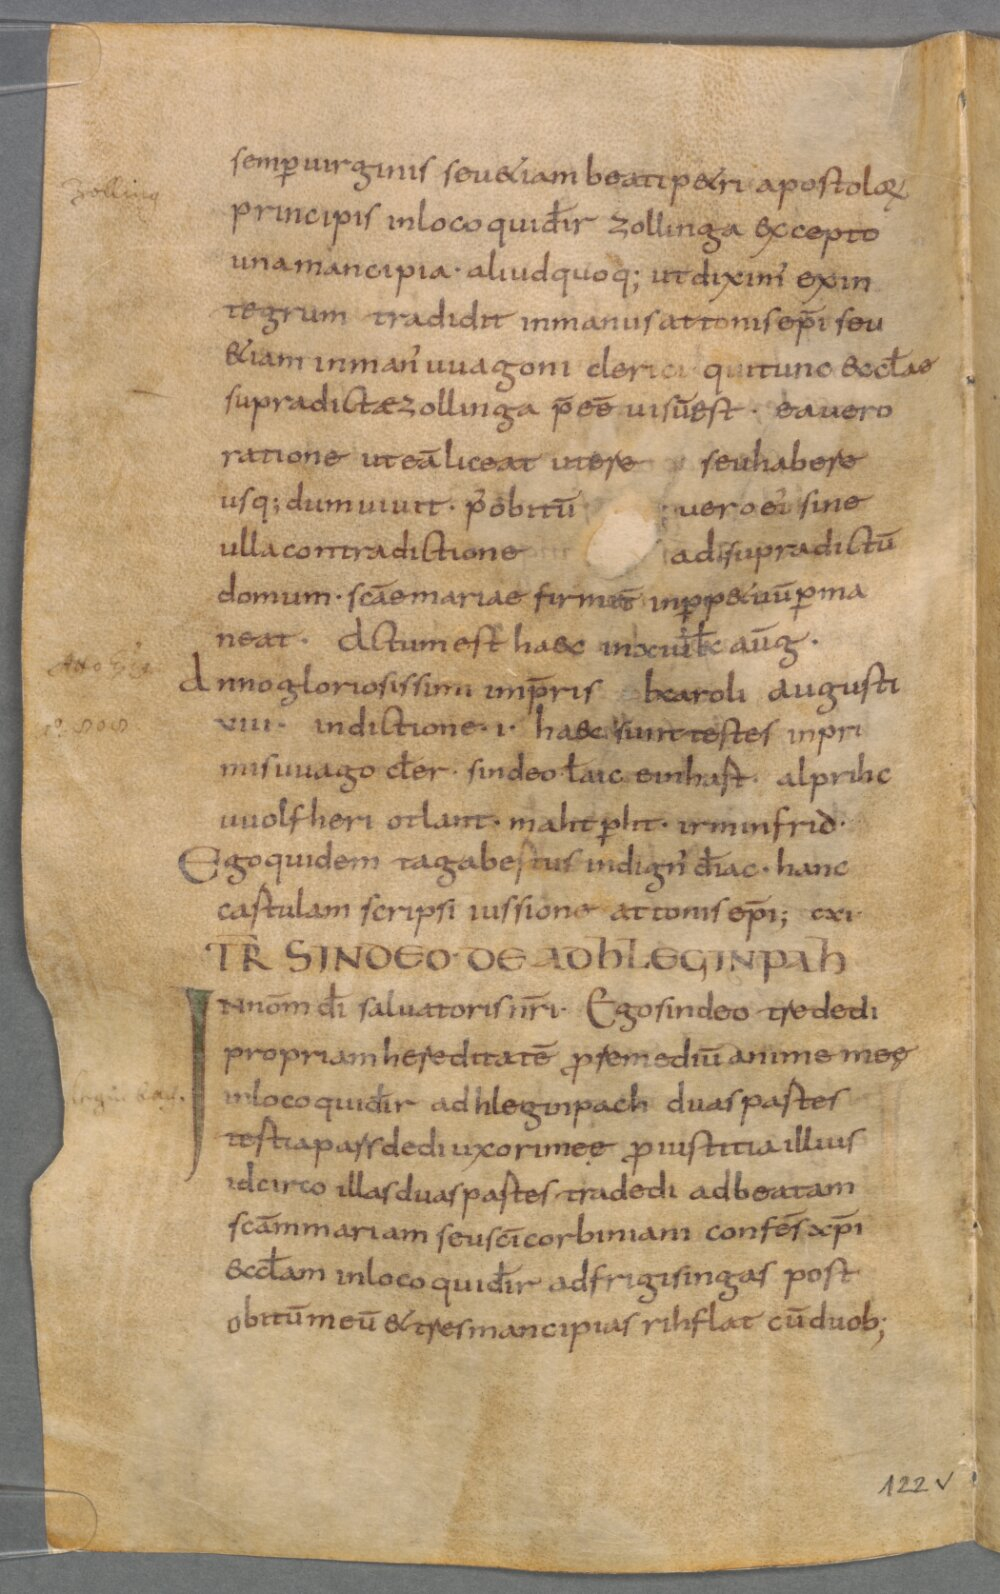 Zolling
semp̄ uirginis seu &iam beati p&ri apostoloꝝ
principis inloco quidr̄ zollinga excepto
una mancipia· aliud quoq; ut diximꝰ exin
tegrum tradidit inmanus attonis ep̄i seu
&iam inmanꝰ uuagoni clerici qui tunc eccl̄ae
supradictæ zollinga p̄ eē uisū est· ea uero
ratione ut eā liceat utere seu habere
usq; dum uiuit· p̄ obitū uero eiꝰ sine
ulla contradictione ad supradictū
domum· scāe mariae firmit̄ inp̄p&uū p̄ma
neat· Actum est haec in xuii kl̄ aūg·
Anno gloriosissimi imp̄ris karoli augusti
xiii· indictione· i· haec sunt testes inpri
mis uuago cl̄er· sindeo l̄aic einhast· alprihc
uuolfheri otlant· maht p̄ht· irminfrid·
Ego quidem tagabertus indignꝰ diāc· hanc
cartulam scripsi iussione attonis ep̄i; cxi·
TR̄ SINDEO· DE ADHLEGINPAH
Innōm dī saluatoris nr̄i· Ego sindeo tredidi
propriam hereditatē p̄remediū anime meę
inloco quidr̄ ad hleginpach duas partes
tertia pars dedi uxori meę p̄ iustitia illius
idcirco illas duas partes tradedi ad beatam
scām mariam seu scī corbiniani confes̄ xp̄i
eccl̄am inloco quidr̄ ad frigisingas post
obitū meū & tres mancipias rihflat cū duob;
122v